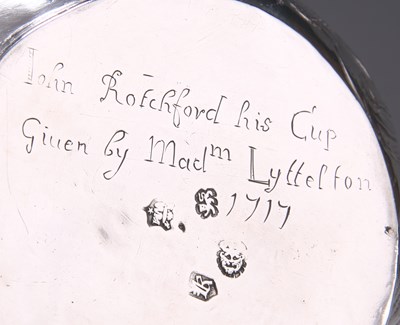 Iohn Rotchford his Cup
Giuen by Madm Lyttelton
1717